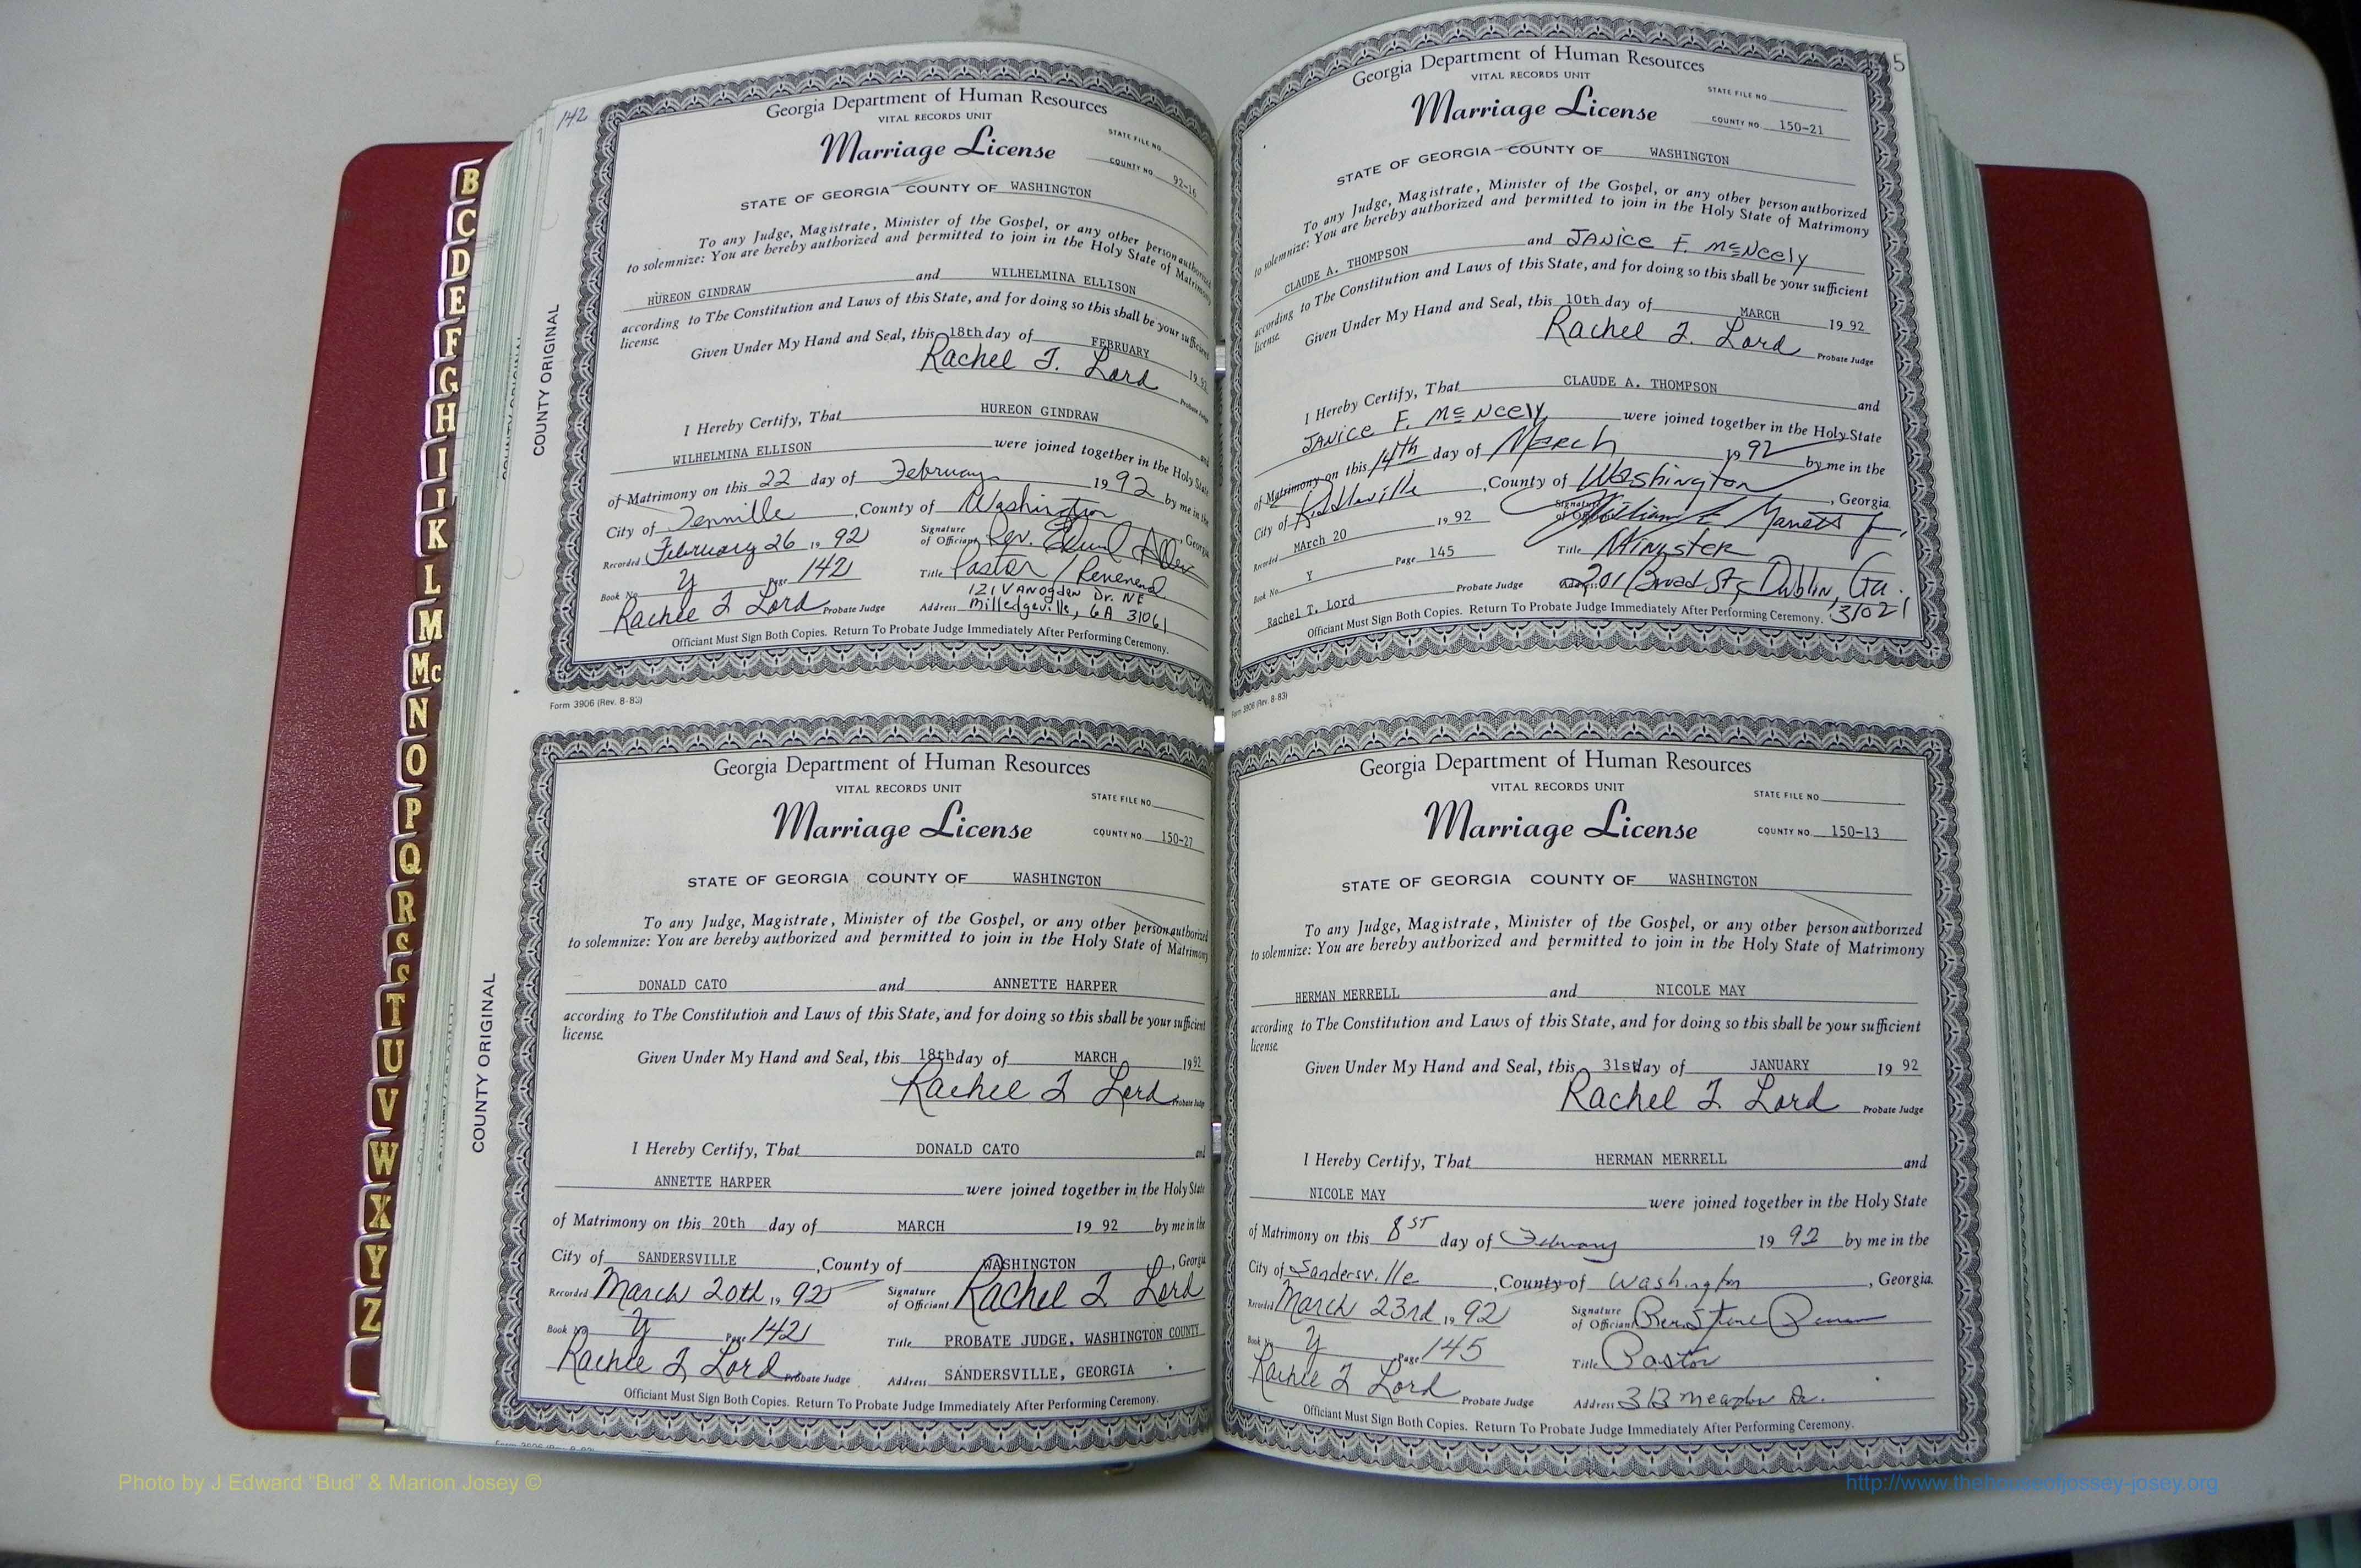 B
C
D
E
F
G
H
I
K
L
M
Mc
N
O
P
Q
R
S
T
U
V
W
X
Y
Z
142
COUNTY ORIGINAL
Georgia Department of Human Resources
VITAL RECORDS UNIT
STATE FILE NO.
Marriage License
COUNTY NO. 92-16
STATE OF GEORGIA COUNTY OF WASHINGTON
To any Judge, Magistrate, Minister of the Gospel, or any other person authorized
to solemnize: You are hereby authorized and permitted to join in the Holy State of Matrimony
HUREON GINDRAW and WILHELMINA ELLISON
according to The Constitution and Laws of this State, and for doing so this shall be your sufficient
license.
Given Under My Hand and Seal, this 18th day of FEBRUARY 1992
Rachel T. Lord Probate Judge
I Hereby Certify, That HUREON GINDRAW and
WILHELMINA ELLISON were joined together in the Holy State
of Matrimony on this 22 day of February 1992 by me in the
City of Tennille, County of Washington, Georgia
Recorded February 26 1992 Signature of Officiant Rev.
Book No. Y Page 142 Title Pastor / Reverend
Rachel T Lord Probate Judge Address 121 Vanogden Dr. NE
Milledgeville, GA 31061
Officiant Must Sign Both Copies. Return To Probate Judge Immediately After Performing Ceremony.
Form 3906 (Rev. 8-83)
COUNTY ORIGINAL
Georgia Department of Human Resources
VITAL RECORDS UNIT
STATE FILE NO.
Marriage License
COUNTY NO. 150-27
STATE OF GEORGIA COUNTY OF WASHINGTON
To any Judge, Magistrate, Minister of the Gospel, or any other person authorized
to solemnize: You are hereby authorized and permitted to join in the Holy State of Matrimony
DONALD CATO and ANNETTE HARPER
according to The Constitution and Laws of this State, and for doing so this shall be your sufficient
license.
Given Under My Hand and Seal, this 18th day of MARCH 1992
Rachel T Lord Probate Judge
I Hereby Certify, That DONALD CATO and
ANNETTE HARPER were joined together in the Holy State
of Matrimony on this 20th day of MARCH 19 92 by me in the
City of SANDERSVILLE, County of WASHINGTON, Georgia
Recorded March 20th, 1992 Signature of Officiant Rachel T. Lord
Book No Y Page 142 Title PROBATE JUDGE, WASHINGTON COUNTY
Rachel T Lord Probate Judge Address SANDERSVILLE, GEORGIA
Officiant Must Sign Both Copies. Return To Probate Judge Immediately After Performing Ceremony.
5
Georgia Department of Human Resources
VITAL RECORDS UNIT
STATE FILE NO.
Marriage License
COUNTY NO. 150-21
STATE OF GEORGIA COUNTY OF WASHINGTON
To any Judge, Magistrate, Minister of the Gospel, or any other person authorized
to solemnize: You are hereby authorized and permitted to join in the Holy State of Matrimony
CLAUDE A. THOMPSON and Janice F. McNeely
according to The Constitution and Laws of this State, and for doing so this shall be your sufficient
license.
Given Under My Hand and Seal, this 10th day of MARCH 19 92
Rachel T. Lord Probate Judge
I Hereby Certify, That CLAUDE A. THOMPSON and
Janice F. McNeely were joined together in the Holy State
of Matrimony on this 14th day of March 1992 by me in the
City of Riddleville, County of Washington, Georgia.
Recorded MArch 20 19 92 Signature of Officiant William E
Book No. Y Page 145 Title Minister
Rachel T. Lord Probate Judge Address 201 Broad St, Dublin, Ga.
31021
Officiant Must Sign Both Copies. Return To Probate Judge Immediately After Performing Ceremony.
Form 3906 (Rev. 8-83)
Georgia Department of Human Resources
VITAL RECORDS UNIT
STATE FILE NO.
Marriage License
COUNTY NO. 150-13
STATE OF GEORGIA COUNTY OF WASHINGTON
To any Judge, Magistrate, Minister of the Gospel, or any other person authorized
to solemnize: You are hereby authorized and permitted to join in the Holy State of Matrimony
HERMAN MERRELL and NICOLE MAY
according to The Constitution and Laws of this State, and for doing so this shall be your sufficient
license.
Given Under My Hand and Seal, this 31st day of JANUARY 19 92
Rachel T. Lord Probate Judge
I Hereby Certify, That HERMAN MERRELL and
NICOLE MAY were joined together in the Holy State
of Matrimony on this 8ST day of February 19 92 by me in the
City of Sandersville, County of Washington, Georgia.
Recorded March 23rd, 1992 Signature of Officiant
Book No. Y Page 145 Title Pastor
Rachel T Lord Probate Judge Address 313 Dr.
Officiant Must Sign Both Copies. Return To Probate Judge Immediately After Performing Ceremony.
Photo by J Edward "Bud" & Marion Josey ©
http://www.thehouseofjossey-josey.org